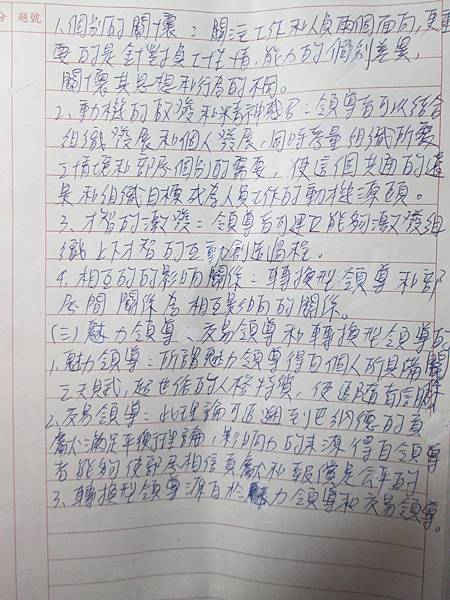 分 題號
1.個別的關懷：關注工作和人員兩個面向,更重
要的是針對員工性情,能力的個別差異,
關懷其思想和行為的不同。
2.動機的啟發和精神感召：領導者可以結合
組織發展和個人發展,同時考量組織所需
之情境和部屬個別的需要,使這個共同的遠
景和組織目標成為人員工作的動機源頭。
3.才智的激發：領導者可建立能夠激發組
織上下才智的互動創造過程。
4.相互的的影响關係：轉換型領導和部
屬間關係為相互影响的關係。
(三)魅力領導、交易領導和轉換型領導的
1.魅力領導：所謂魅力領導得自個人所具備
之天賦,超世俗的人格特質,使追隨者信服
2.交易領導：此理論可追溯到巴納德的貢
獻/滿足平衡理論,影响力的來源得自領導
者能夠使部屬相信貢獻和報償是公平的
3.轉換型領導源自於魅力領導和交易領導。